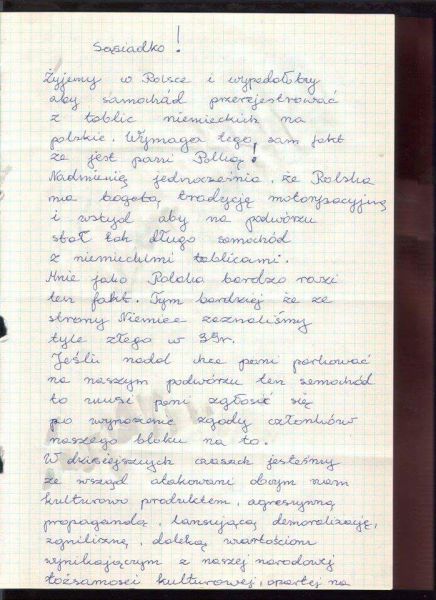 Sąsiadko!
Żyjemy w Polsce i wypadałoby
aby samochód przerejestrować
z tablic niemieckich na
polskie. Wymaga tego sam fakt
że jest pani Polką!
Nadmienię jednocześnie, że Polska
ma bogatą tradycję motoryzacyjną
i wstyd aby na podwórzu
stał tak długo samochód
z niemieckimi tablicami.
Mnie jako Polaka bardzo razi
ten fakt. Tym bardziej że ze
strony Niemiec zaznaliśmy
tyle złego w 39r.
Jeśli nadal chce pani parkować
na naszym podwórzu ten samochód
to musi pani zgłosić się
po wyrażenie zgody członków
naszego bloku na to.
W dzisiejszych czasach jesteśmy
ze wsząd atakowani obcym nam
kulturowo produktem, agresywną
propagandą, lansującą demoralizację,
zgniliznę, daleką wartościom
wynikającym z naszej narodowej
tożsamości kulturowej, opartej na